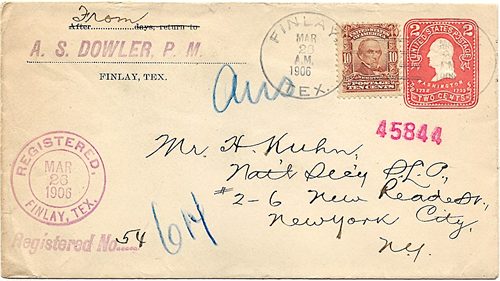 From
After days, return to
A. S. DOWLER, P. M.
FINLAY, TEX.
Ans
FINLAY
MAR
23
A.M.
1906
TEX.
10
10
POSTAGE
TEN CENTS
UNITED STATES POSTAGE
2
2
WASHINGTON
TWO CENTS
45844
REGISTERED,
MAR
23
1906
FINLAY, TEX.
Mr. H. Kuhn,
Nat'l Sec'y S.L.P.,
#2-6 New Reade st.,
New York City,
N.Y.
Registered No. 54
614